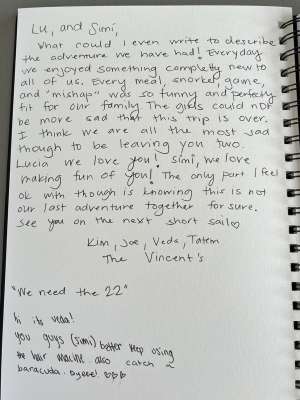 Lu, and Simi,
What could I even write to describe
the adventure we have had! Everyday
we enjoyed something completly new to
all of us. Every meal, snorkel, game,
and "mishap" was so funny and perfectly
fit for our family. The girls could not
be more sad that this trip is over.
I think we are all the most sad
though to be leaving you two.
Lucia we love you! Simi, we love
making fun of you! The only part I feel
ok with though is knowing this is not
our last adventure together for sure.
See you on the next short sail♡
Kim, Joe, Veda, Tatem
The Vincent's
"We need the 22"
hi its veda!
you guys (simi) better keep using
the hair machine. also catch a
baracuda. byeee! ♡♡♡